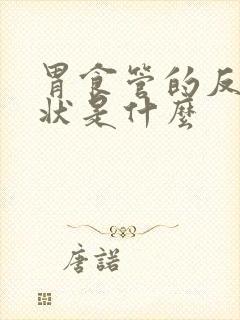 胃食管的反
状是什麼
唐諾